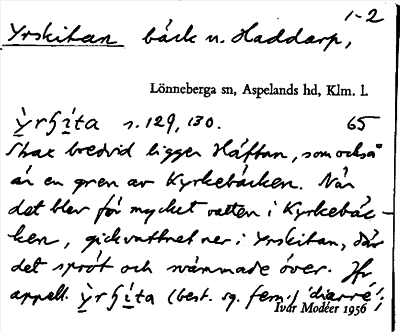 1-2
Yrskitan bäck n. Haddarp,
Lönneberga sn, Aspelands hd, Klm. l.
s. 129, 130. 65
Strax bredvid ligger Håftan, som också
är en gren av Kyrkebäcken. När
det blev för mycket vatten i Kyrkebäc-
ken, gick vattnet ner i Yrskitan, där
det spröt och svämmade över. Jfr
appell. (best. sg. fem.) 'diarré';
Ivar Modéer 1956